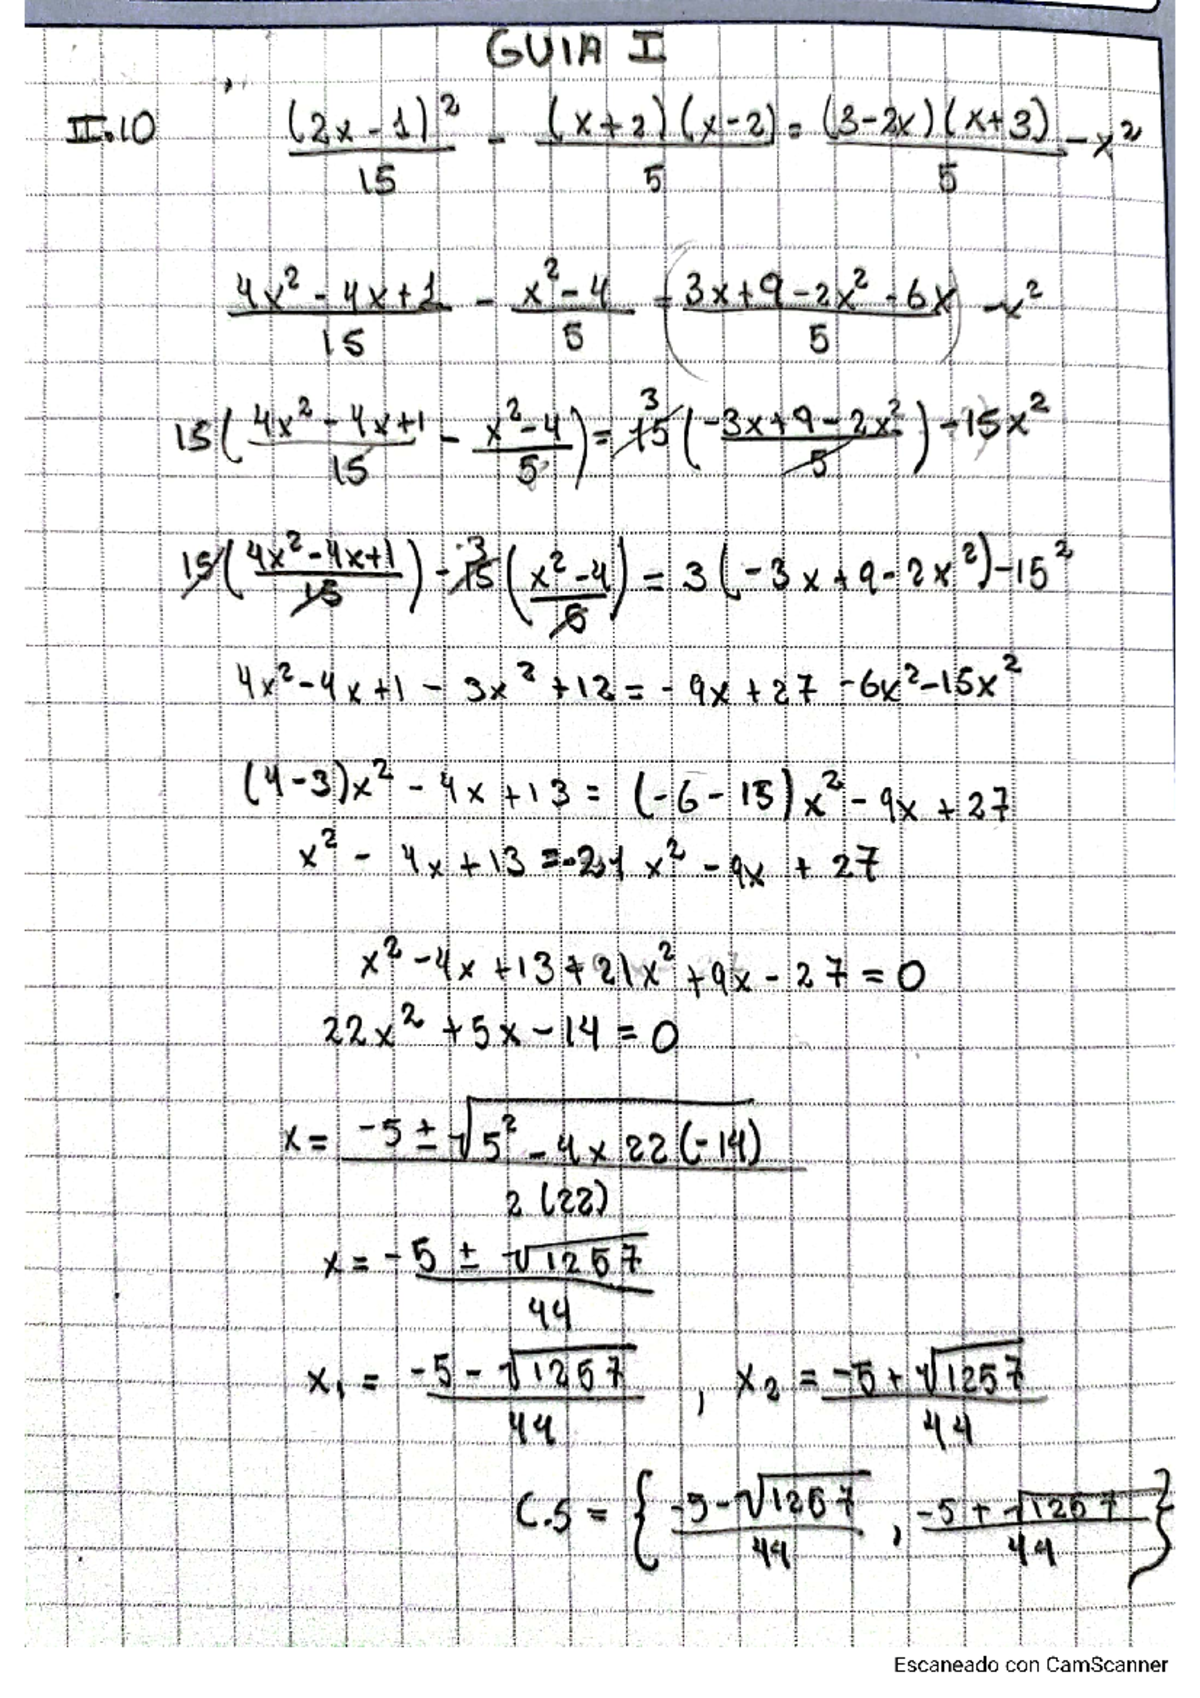 GUIA I
II.10 (2x-1)²/15 - (x+2)(x-2)/5 = (3-2x)(x+3)/5 - x²
(4x² - 4x+1)/15 - (x²-4)/5 = (3x+9-2x²-6x)/5 - x²
15((4x² - 4x+1)/15 - (x²-4)/5) = 15 3 ((-3x+9-2x²)/5) - 15x²
15((4x²-4x+1)/15) - 15 3 ((x²-4)/5) = 3(-3x+9-2x²)-15²
4x²-4x+1 - 3x² +12 = -9x+27 -6x²-15x²
(4-3)x² - 4x+13 = (-6-15)x² - 9x + 27
x² - 4x+13 = -21x² - 9x + 27
x²-4x+13+21x²+9x-27=0
22x² +5x-14=0
x = (-5 ± √(5² - 4x22(-14)))/2(22)
x = (-5 ± √1257)/44
x₁ = (-5 - √1257)/44 , x₂ = (-5+√1257)/44
C.S = {(-5-√1257)/44 , (-5+√1257)/44}
Escaneado con CamScanner